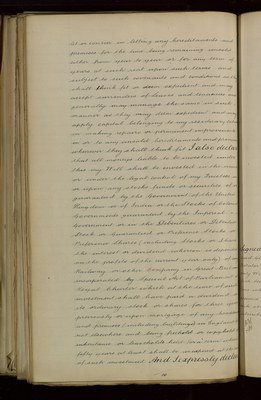 at or in letting any hereditaments and
premises for the time being remaining unsold
either from year to year or for any term of
years at such rent upon such terms and
subject to such covenants and conditions as they
shall think fit or deem expedient and may
accept surrenders of leases and tenancies and
generally may manage the same in such
manner as they may deem expedient and may
apply capital belonging to my
in making repairs or permanent improvements
on or to any unsold hereditaments and premises
whenever they shall think fit I also declare
that all moneys liable to be invested under
this my Will shall be invested in the name
or under the legal control of my Trustees in
or upon any stocks funds or securities of or
guaranteed by the Government of the United
Kingdom or of India or the Stocks of Colonial
Governments guaranteed by the Imperial
Government or in the Debentures or Debenture
Stock or Guaranteed or Preference Stocks or
Preference Shares (including Stocks or Shares
the interest or dividend whereon is
on the profits of the current year only) of any
Railway or other Company in Great Britain
incorporated by Special Act of Parliament or
Royal Charter which at the time of such
investment shall have paid a dividend on
its ordinary stock or shares for
previously or upon mortgage of any
and premises (including buildings) in England
not otherwise
inheritance or leasehold held for a term
fifty years at least
of such investment And I expressly declare